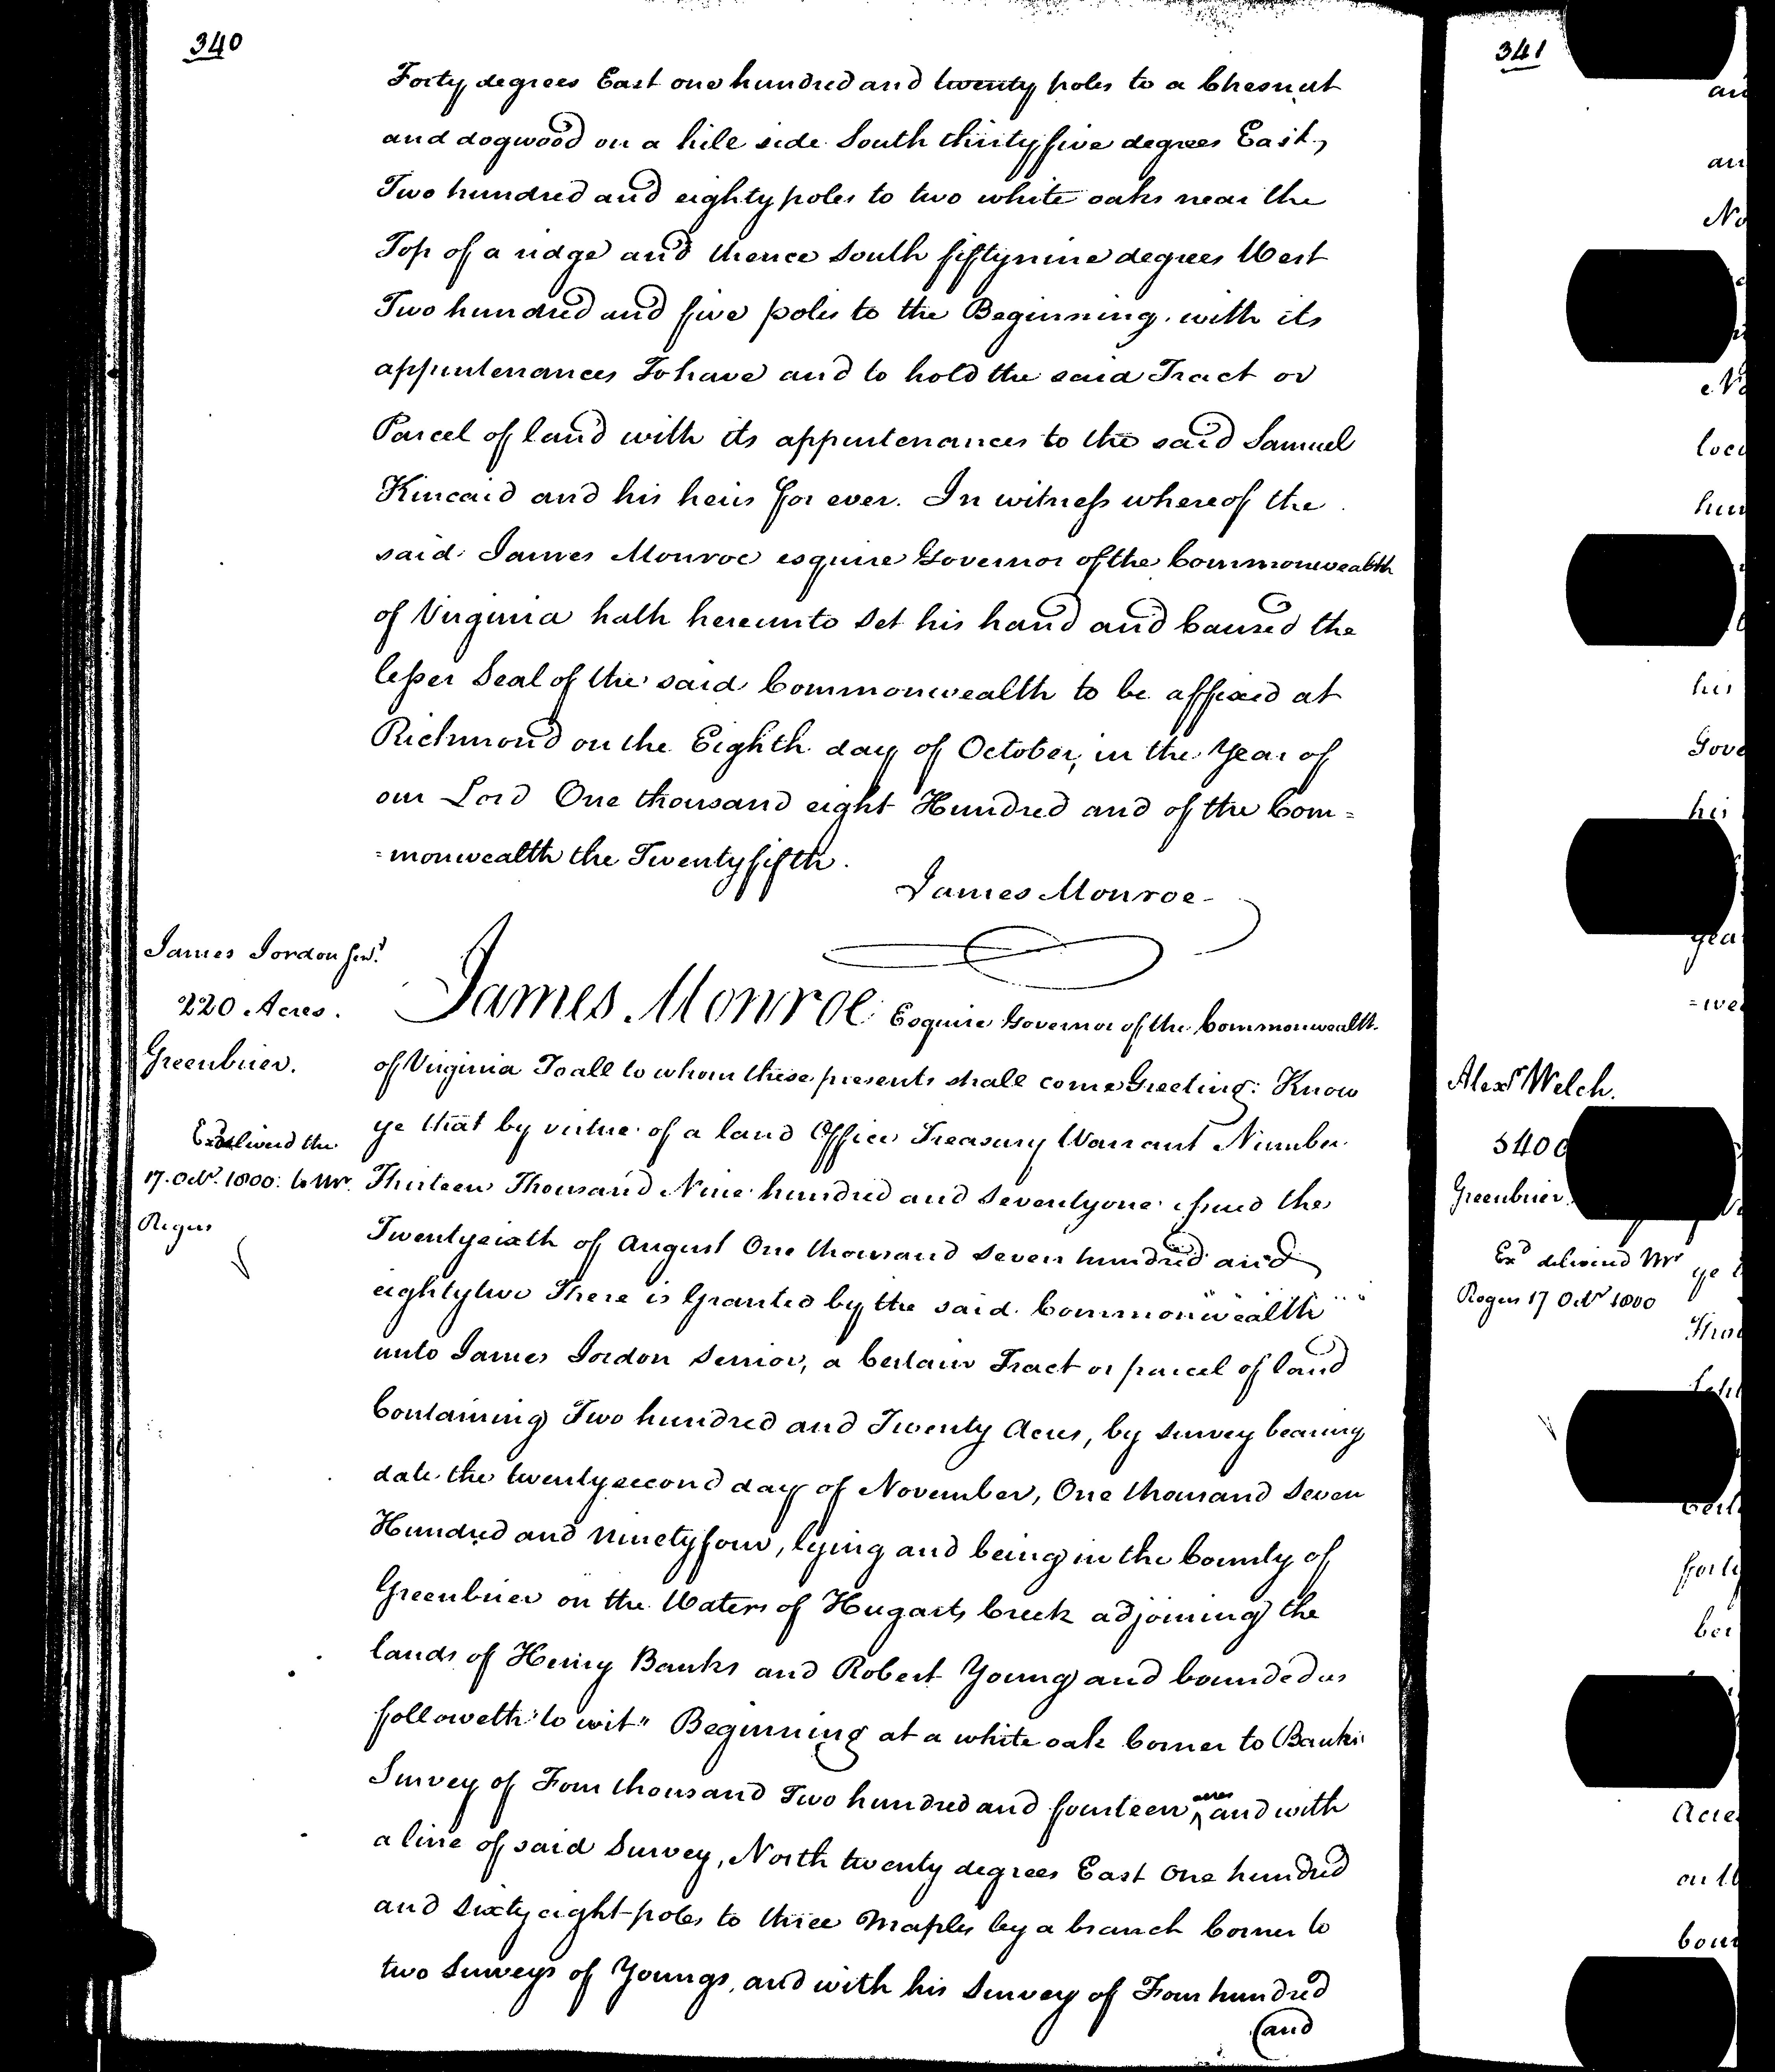 340
Forty degrees East one hundred and twenty poles to a Chesnut
and dogwood on a hill side South thirty five degrees East,
Two hundred and eighty poles to two white oaks near the
Top of a ridge and thence South fifty nine degrees West
Two hundred and five poles to the Beginning. with its
appurtenances To have and to hold the said Tract or
Parcel of land with its appurtenances to the said Samuel
Kincaid and his heirs for ever. In witness whereof the
said James Monroe esquire Governor of the Commonwealth
of Virginia hath hereunto Set his hand and Caused the
lesser Seal of the said Commonwealth to be affixed at
Richmond on the Eighth day of October, in the Year of
our Lord One thousand eight Hundred and of the Com=
=monwealth the Twenty fifth.
James Monroe
James Jordon Senr.
220 Acres.
Greenbrier.
Exd. delivered the
17. Octr. 1800. to Mr.
Rogers
James Monroe Esquire Governor of the Commonwealth
of Virginia To all to whom these presents shall come Greeting: Know
ye that by virtue of a land Office Treasury Warrant Number
Thirteen Thousand Nine hundred and Seventy one issued the
Twenty sixth of August One thousand Seven hundred and
eighty two There is Granted by the said Commonwealth
unto James Jordon Senior, a Certain Tract or parcel of land
Containing Two hundred and Twenty Acres, by Survey bearing
date the twenty second day of November, One thousand Seven
Hundred and Ninety four, lying and being in the County of
Greenbrier on the Waters of Hugarts Creek adjoining the
lands of Henry Banks and Robert Young and bounded as
followeth "to wit" Beginning at a white oak Corner to Banks
Survey of Four thousand Two hundred and fourteen acres and with
a line of said Survey, North twenty degrees East One hundred
and Sixty eight poles to three Maples by a branch Corner to
two Surveys of Youngs, and with his Survey of Four hundred
(and
341
Alexr. Welch.
5400
Greenbrier.
Exd delivered Mr
Rogers 17 Octr 1800
an
an
No
No
loca
hun
his
Gove
his
yea
=we
ye
Thou
Cert
forty
bei
Acre
on th
boun